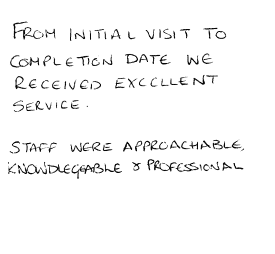 FROM INITIAL VISIT TO
COMPLETION DATE WE
RECEIVED EXCELLENT
SERVICE.
STAFF WERE APPROACHABLE,
KNOWDLEGEABLE & PROFESSIONAL